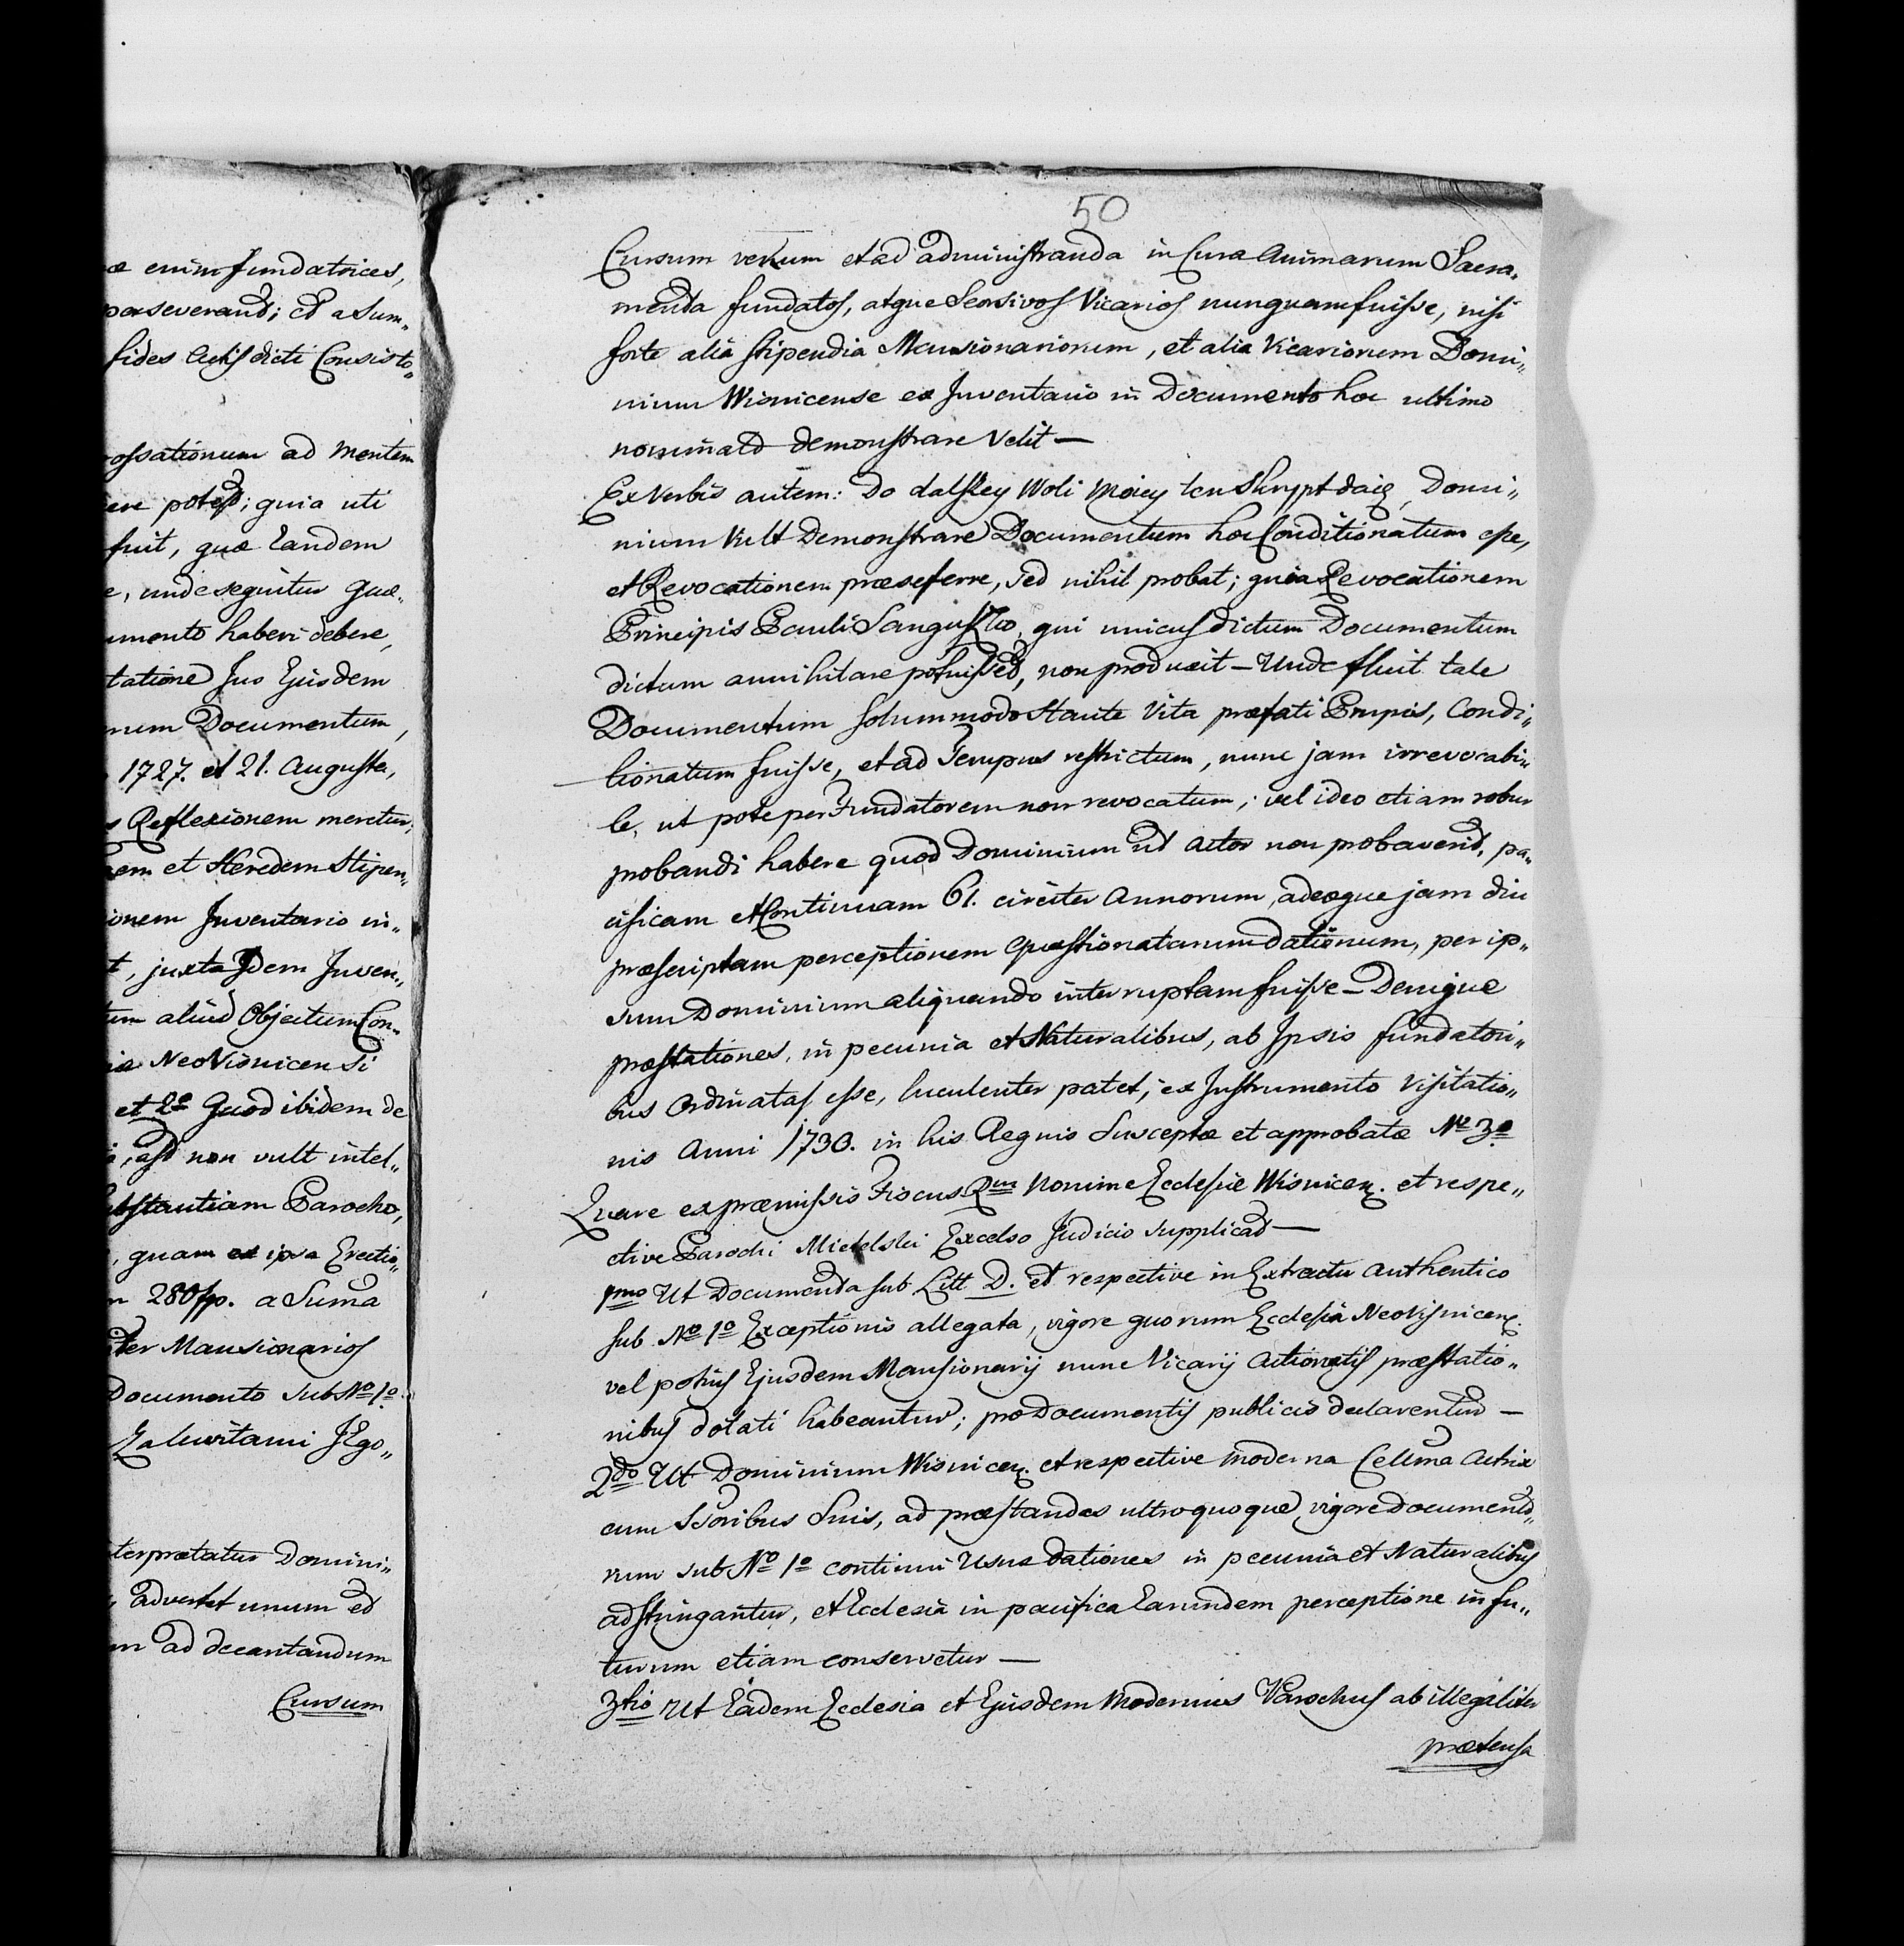 æ enim fundatrices,
perseverant; et a Sum„
fides Actis dicti Consisto„
ossationum ad mentem
ere potest; quia uti
fuit, quæ Eandem
e, unde sequitur Quæ„
umento haberi debere,
tatione Jus Ejusdem
num Documentum,
1727. et 21. Augusta,
s Reflexionem meretur;
em et Heredem Stipen„
ionem Inventario in„
t, juxta Idem Inven„
tum aliud Objectum Con„
ia NeoVisnicensi
et 2º Quod ibidem de
, ast non vult intel„
ubstantiam Parocho,
, quam ex ipsa Erectio„
m 280 fp. a Suma
ter Mansionarios
Documento Sub Nº 1º
Zakuritami Jego„
terprætatur Domini„
, advertet unum et
m ad decantandum
Cursum
50
Cursum verum et ad administranda in Cura Animarum Sacra„
menta fundatos, atque Seorsivos Vicarios nunquam fuisse, nisi
forte alia stipendia Mansionariorum, et alia Vicariorum Domi„
nium Wisnicense ex Inventario in Documento hoc ultimo
nominato demonstrare velit —
Ex Verbis autem: Do dalszey Woli Moiey ten Skrypt daię, Domi„
nium Vult Demonstrare Documentum hoc Conditionatum esse,
et Revocationem præseferre, sed nihil probat; quia Revocationem
Principis Pauli Sangusko, qui unicus dictum Documentum
dictum annihilare potuisset, non produxit — Unde fluit tale
Documentum solummodo stante Vita præfati Principis, Condi„
tionatum fuisse, et ad Tempus restrictum, nunc jam irrevocabi„
le, ut pote per Fundatorem non revocatum; vel ideo etiam robur
probandi habere quod Dominium ut Actor non probaverit, pa„
cificam et Continuam 61. circiter Annorum, adeoque jam diu
præscriptam perceptionem Quæstionatarum dationum, per ip„
sum Dominium aliquando interruptam fuisse — Denique
præstationes, in pecunia et Naturalibus, ab Ipsis fundatori„
bus Ordinatas esse, luculenter patet, ex Instrumento Visitatio„
nis Anni 1730. in his Regnis Susceptæ et approbatæ Nº 3º
Quare ex præmissis Fiscus Rus Nomine Ecclesiæ Wisnicen. et respe„
ctive Parochi Michelski Excelso Judicio supplicat —
1mo Ut Documenta sub Litt D. et respective in Extractu authentico
sub Nº 1º Exceptionis allegata, vigore quorum Ecclesia NeoVisnicen.
vel potius Ejusdem Mansionarij nunc Vicarij Actionatis præstatio„
nibus dotati habeantur; pro Documentis publicis declarentur —
2do Ut Dominium Wisnicen. et respective moderna Cellma Actrix
cum Ssoribus Suis, ad præstandas ultro quoque, vigore documento„
rum sub Nº 1º continui Usus dationes in pecunia et Naturalibus
adstringantur, et Ecclesia in pacifica Earundem perceptione in fu„
turum etiam conservetur —
3tio Ut Eadem Ecclesia et Ejusdem Modernus Parochus ab illegaliter
prætensa